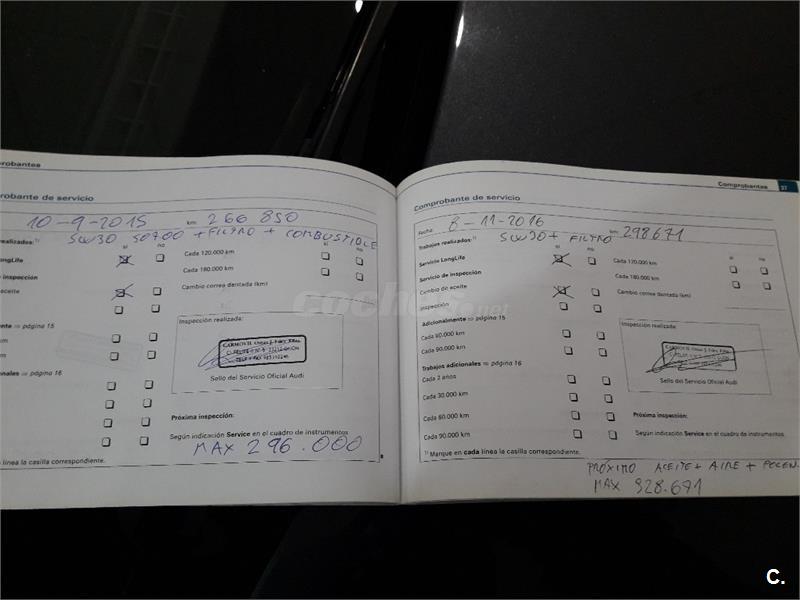 probantes
robante de servicio
10-9-2015 km: 266 850
5W30 50700 + FILTRO + COMBUSTIBLE
realizados: ¹⁾ sí no sí no
ongLife Cada 120.000 km
Cada 180.000 km
inspección
aceite Cambio correa dentada (km)
Inspección realizada:
ente ⇒ página 15
km
Sello del Servicio Oficial Audi
onales ⇒ página 16
Próxima inspección:
Según indicación Service en el cuadro de instrumentos
MAX 296.000
línea la casilla correspondiente.
Comprobantes 37
Comprobante de servicio
Fecha: 8-11-2016 km: 298671
5W30 + FILTRO
Trabajos realizados: ¹⁾ sí no sí no
Servicio LongLife Cada 120.000 km
Cada 180.000 km
Servicio de inspección
Cambio de aceite Cambio correa dentada (km)
Inspección
Adicionalmente ⇒ página 15 Inspección realizada:
Cada 60.000 km
Cada 90.000 km
Trabajos adicionales ⇒ página 16
Cada 2 años Sello del Servicio Oficial Audi
Cada 30.000 km
Cada 60.000 km Próxima inspección:
Cada 90.000 km Según indicación Service en el cuadro de instrumentos
¹⁾ Marque en cada línea la casilla correspondiente.
PRÓXIMO ACEITE + AIRE + POLEN.
MAX 328.671
coches.net
C.